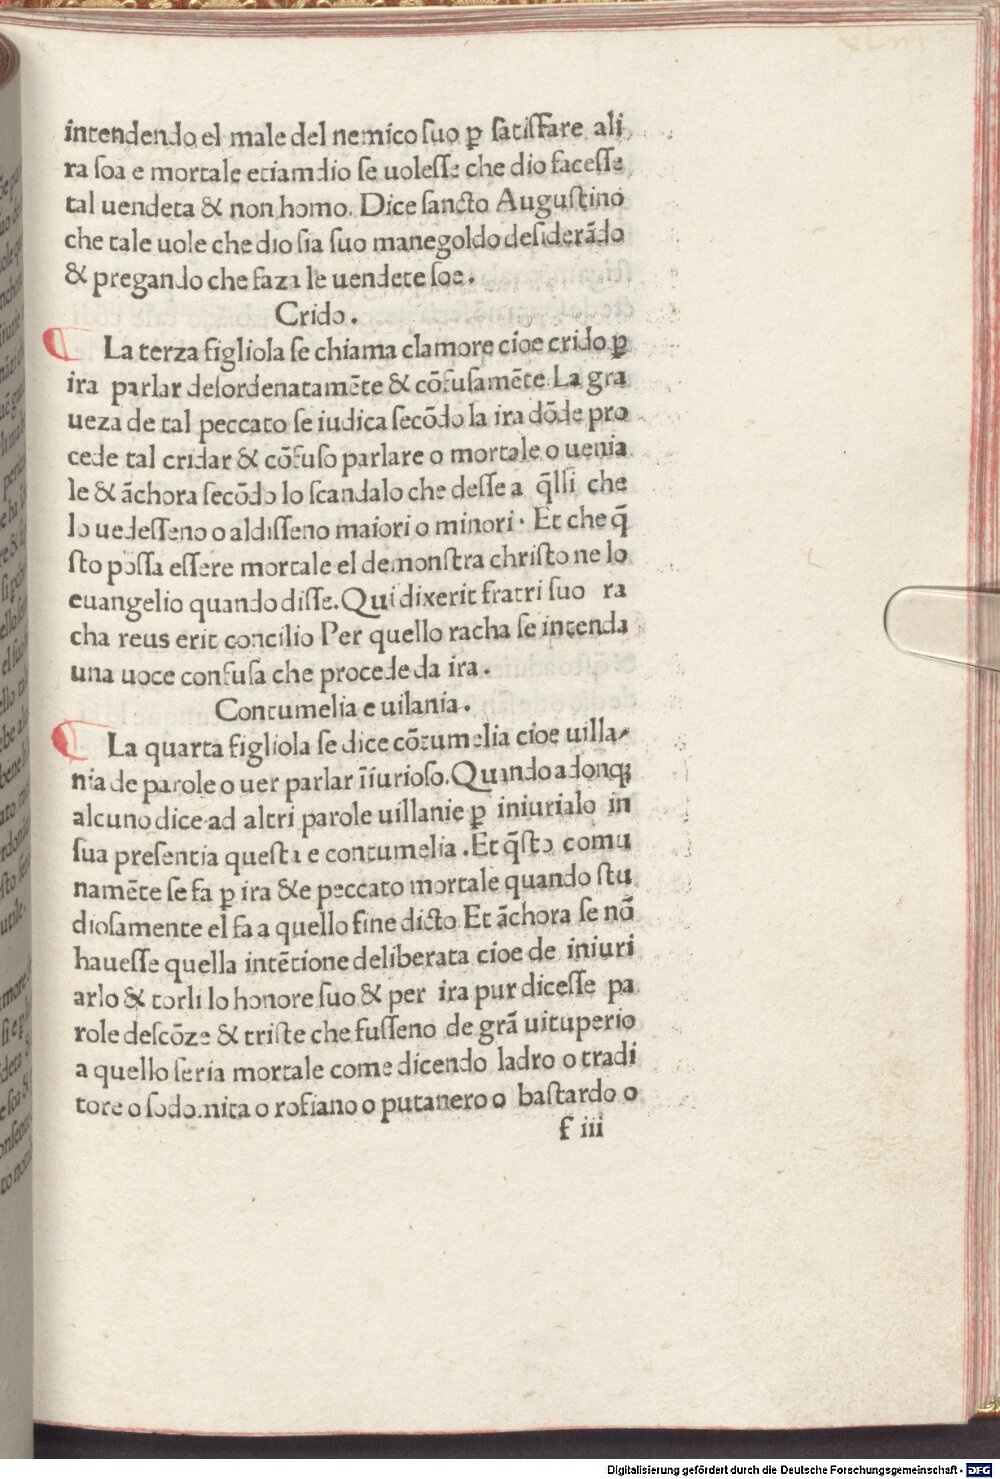 intendendo el male del nemico ſuo ꝑ ſatiſfare ali
ra ſoa e mortale etiamdio ſe uoleſſe che dio faceſſe
tal uendeta & non homo. Dice ſancto Auguſtino
che tale uole che dio ſia ſuo manegoldo deſiderãdo
& pregando che faza le uendete ſoe.
Crido.
La terza figliola ſe chiama clamore cioe crido ꝑ
ira parlar deſordenatamẽte & cõfuſamẽte La gra
ueza de tal peccato ſe iudica ſecõdo la ira dõde pro
cede tal cridar & cõfuſo parlare o mortale o uenia
le & ãchora ſecõdo lo ſcandalo che deſſe a q̃lli che
lo uedeſſeno o aldiſſeno maiori o minori. Et che q̃
ſto poſſa eſſere mortale el demonſtra chriſto ne lo
euangelio quando diſſe. Qui dixerit fratri ſuo ra
cha reus erit concilio Per quello racha ſe intenda
una uoce confuſa che procede da ira.
Contumelia e uilania.
La quarta figliola ſe dice cõtumelia cioe uilla-
nia de parole o uer parlar ĩiurioſo. Quando adonqꝫ
alcuno dice ad altri parole uillanie ꝑ iniurialo in
ſua preſentia queſta e contumelia. Et q̃ſto comu
namẽte ſe fa ꝑ ira & e peccato mortale quando ſtu
dioſamente el fa a quello fine dicto Et ãchora ſe nõ
haueſſe quella intẽtione deliberata cioe de iniuri
arlo & torli lo honore ſuo & per ira pur diceſſe pa
role deſcõze & triſte che fuſſeno de grã uituperio
a quello ſeria mortale come dicendo ladro o tradi
tore o ſodomita o rofiano o putanero o baſtardo o
f iii
Digitalisierung gefördert durch die Deutsche Forschungsgemeinschaft - DFG